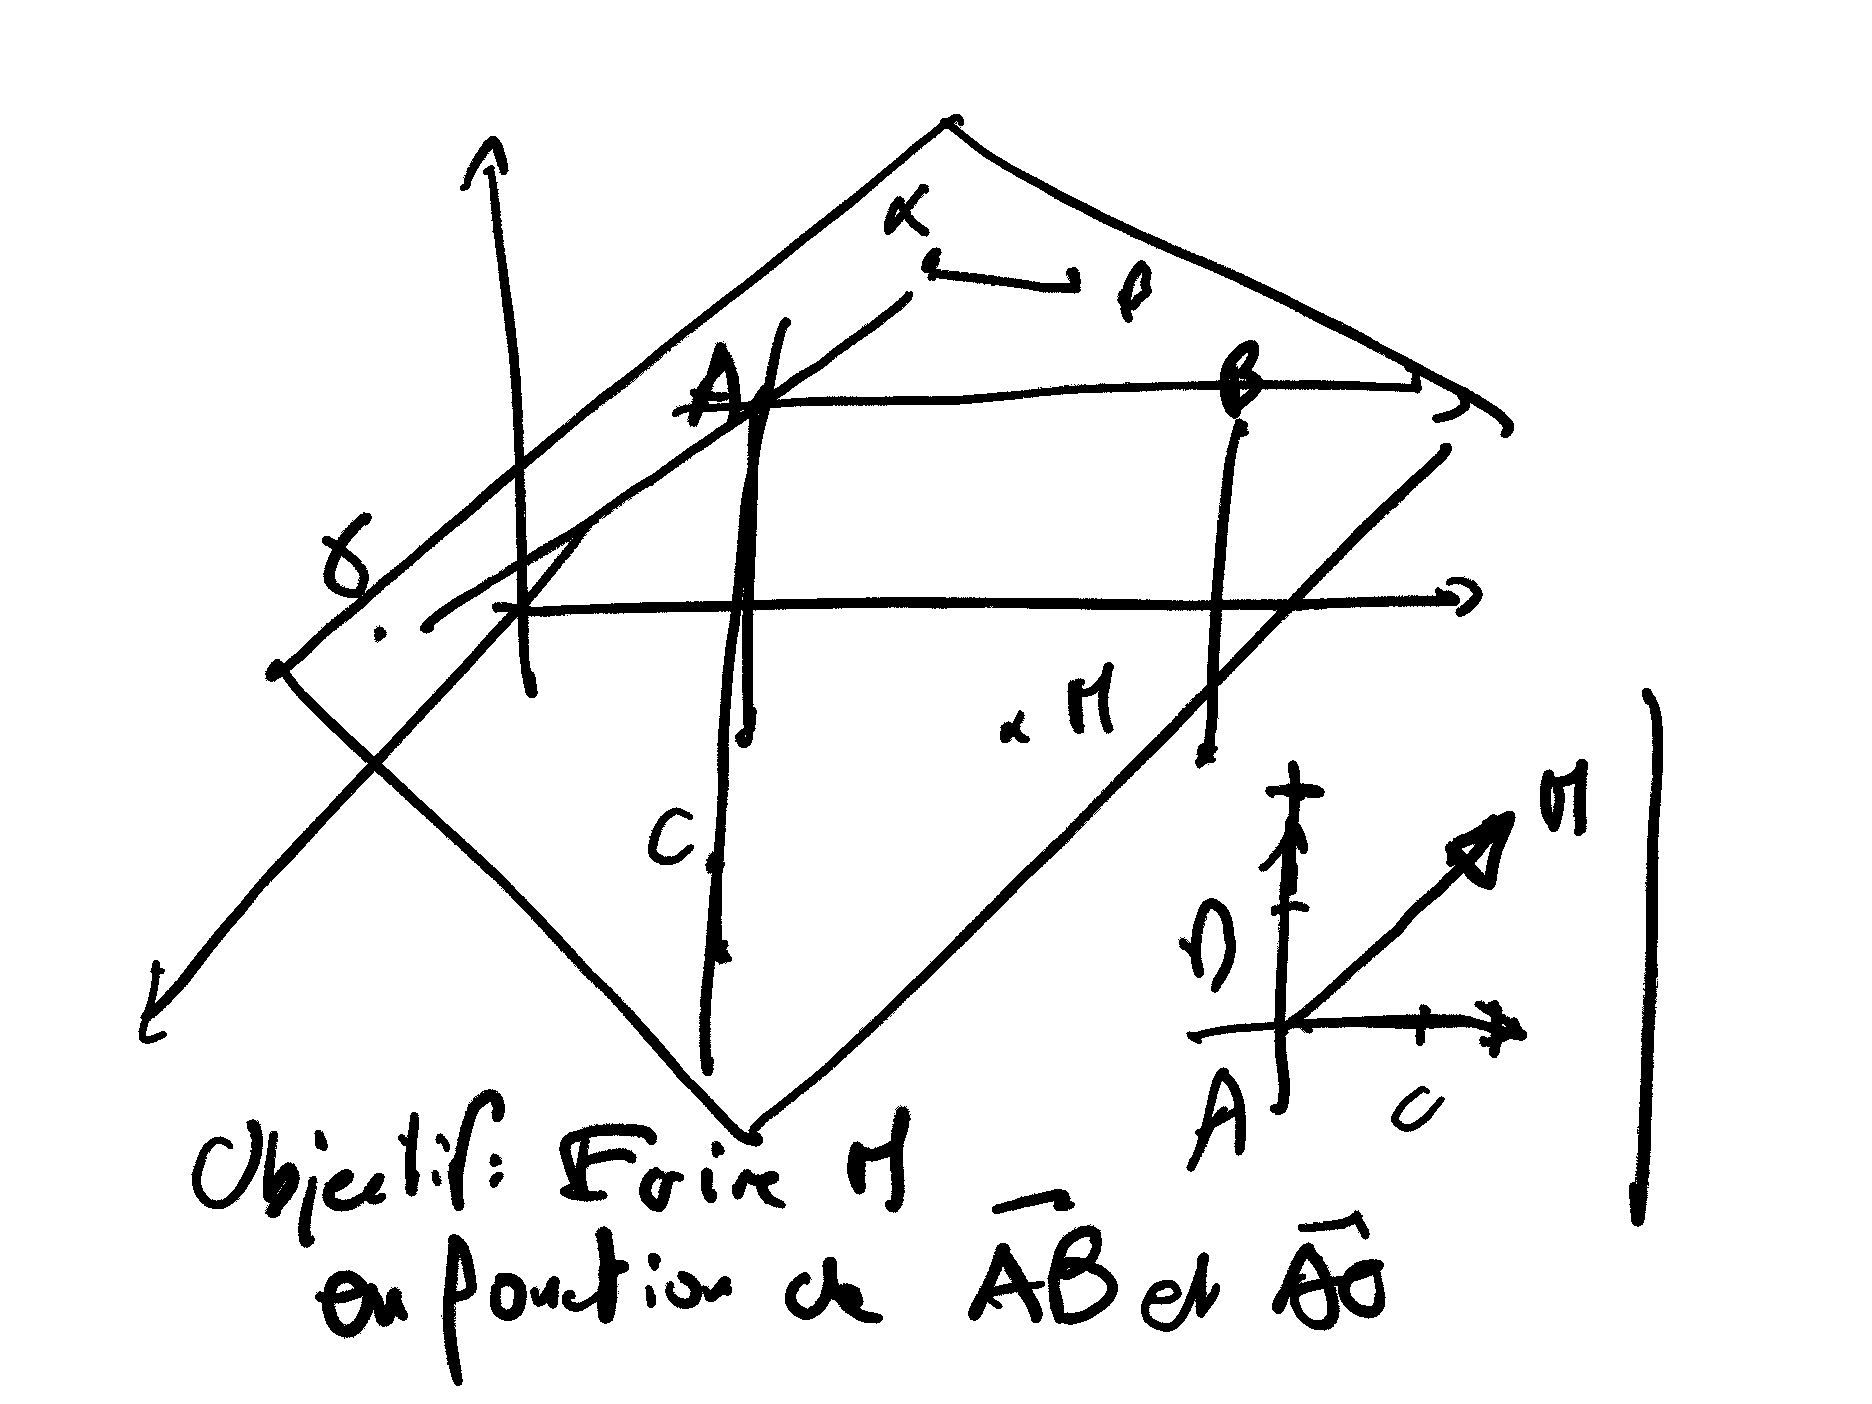 α
A
B
γ
M
C
M
D
A
C
Objectif: Ecrire M
en fonction de AB et AC